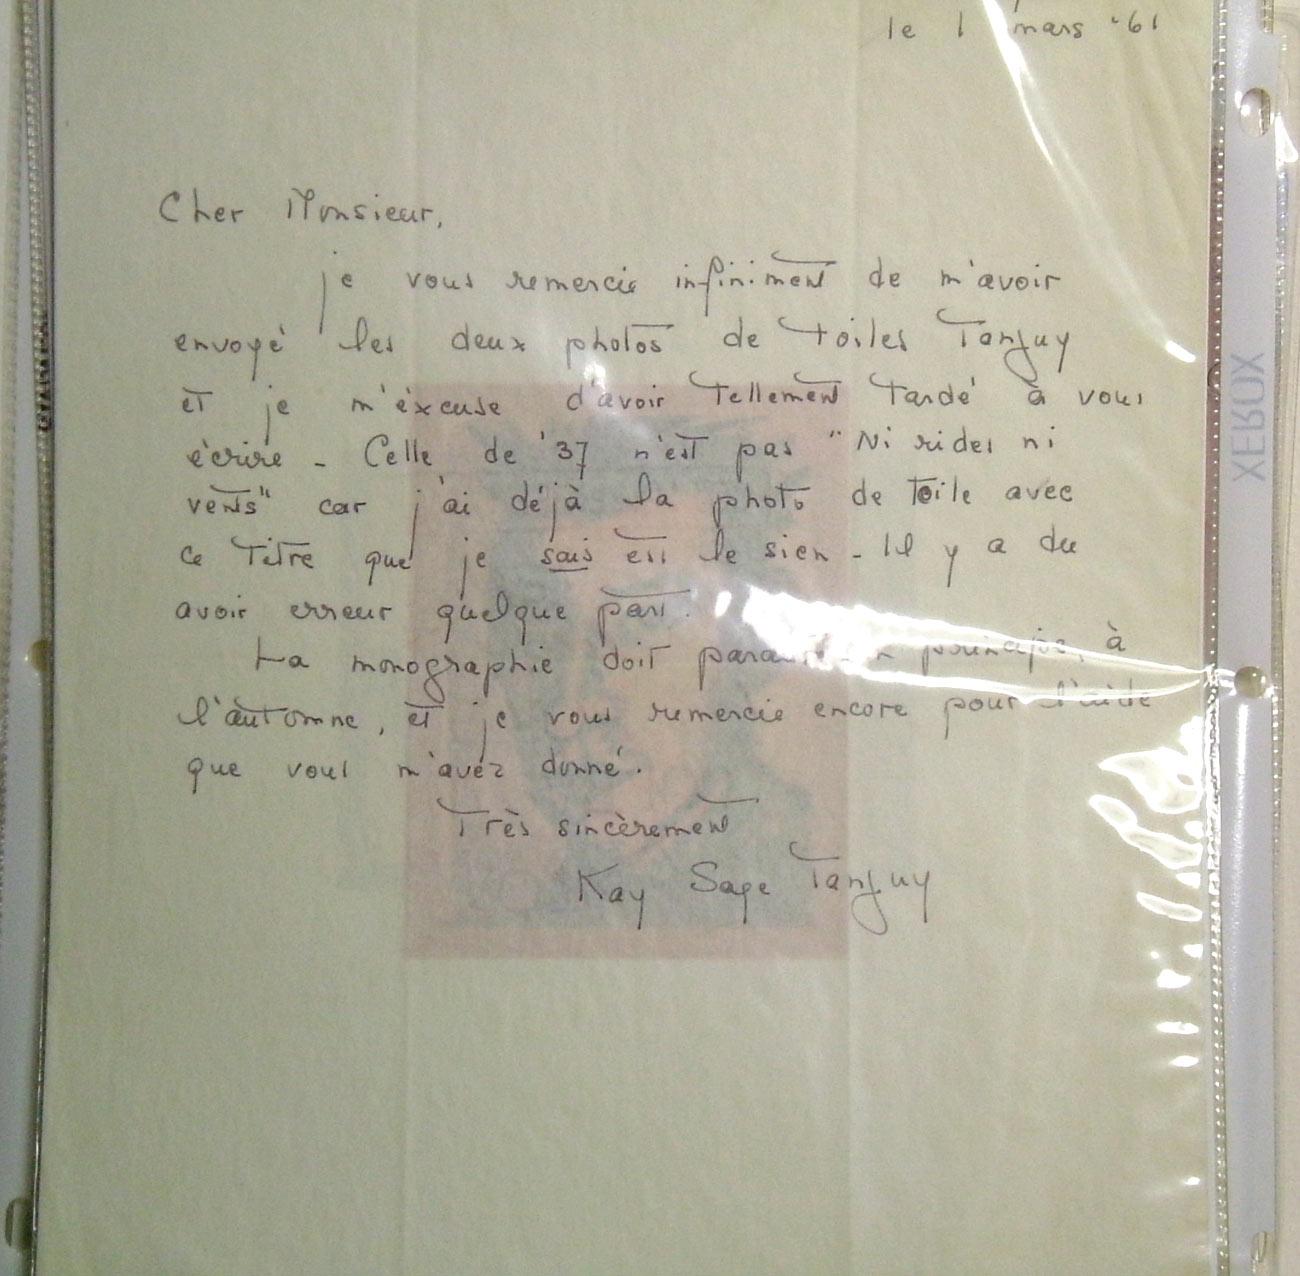 le 1 mars '61
Cher Monsieur,
je vous remercie infiniment de m'avoir
envoyé les deux photos de toiles Tanguy
et je m'éxcuse d'avoir tellement tardé à vous
écrire - Celle de '37 n'est pas "Ni rides ni
vents" car j'ai déjà la photo de toile avec
ce titre que je sais est le sien - Il y a du
avoir erreur quelque part.
La monographie doit principe, à
l'automne, et je vous remercie encore pour l'aide
que vous m'avez donné.
Très sincèrement
Kay Sage Tanguy
XEROX